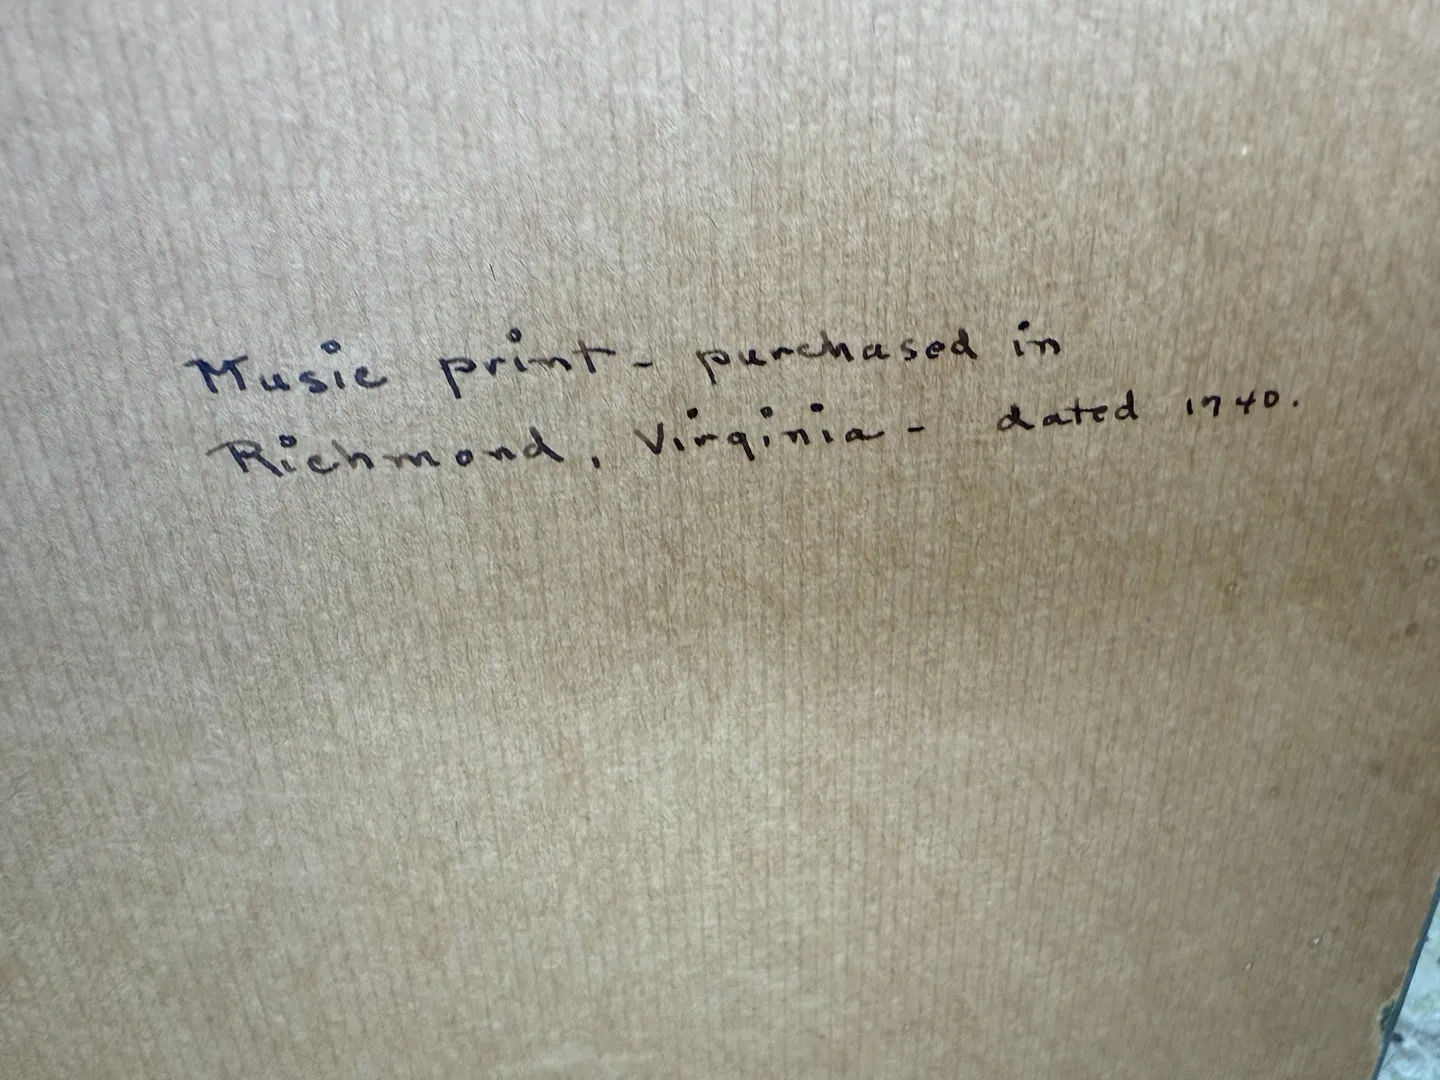 Music print - purchased in
Richmond, Virginia - dated 1740.